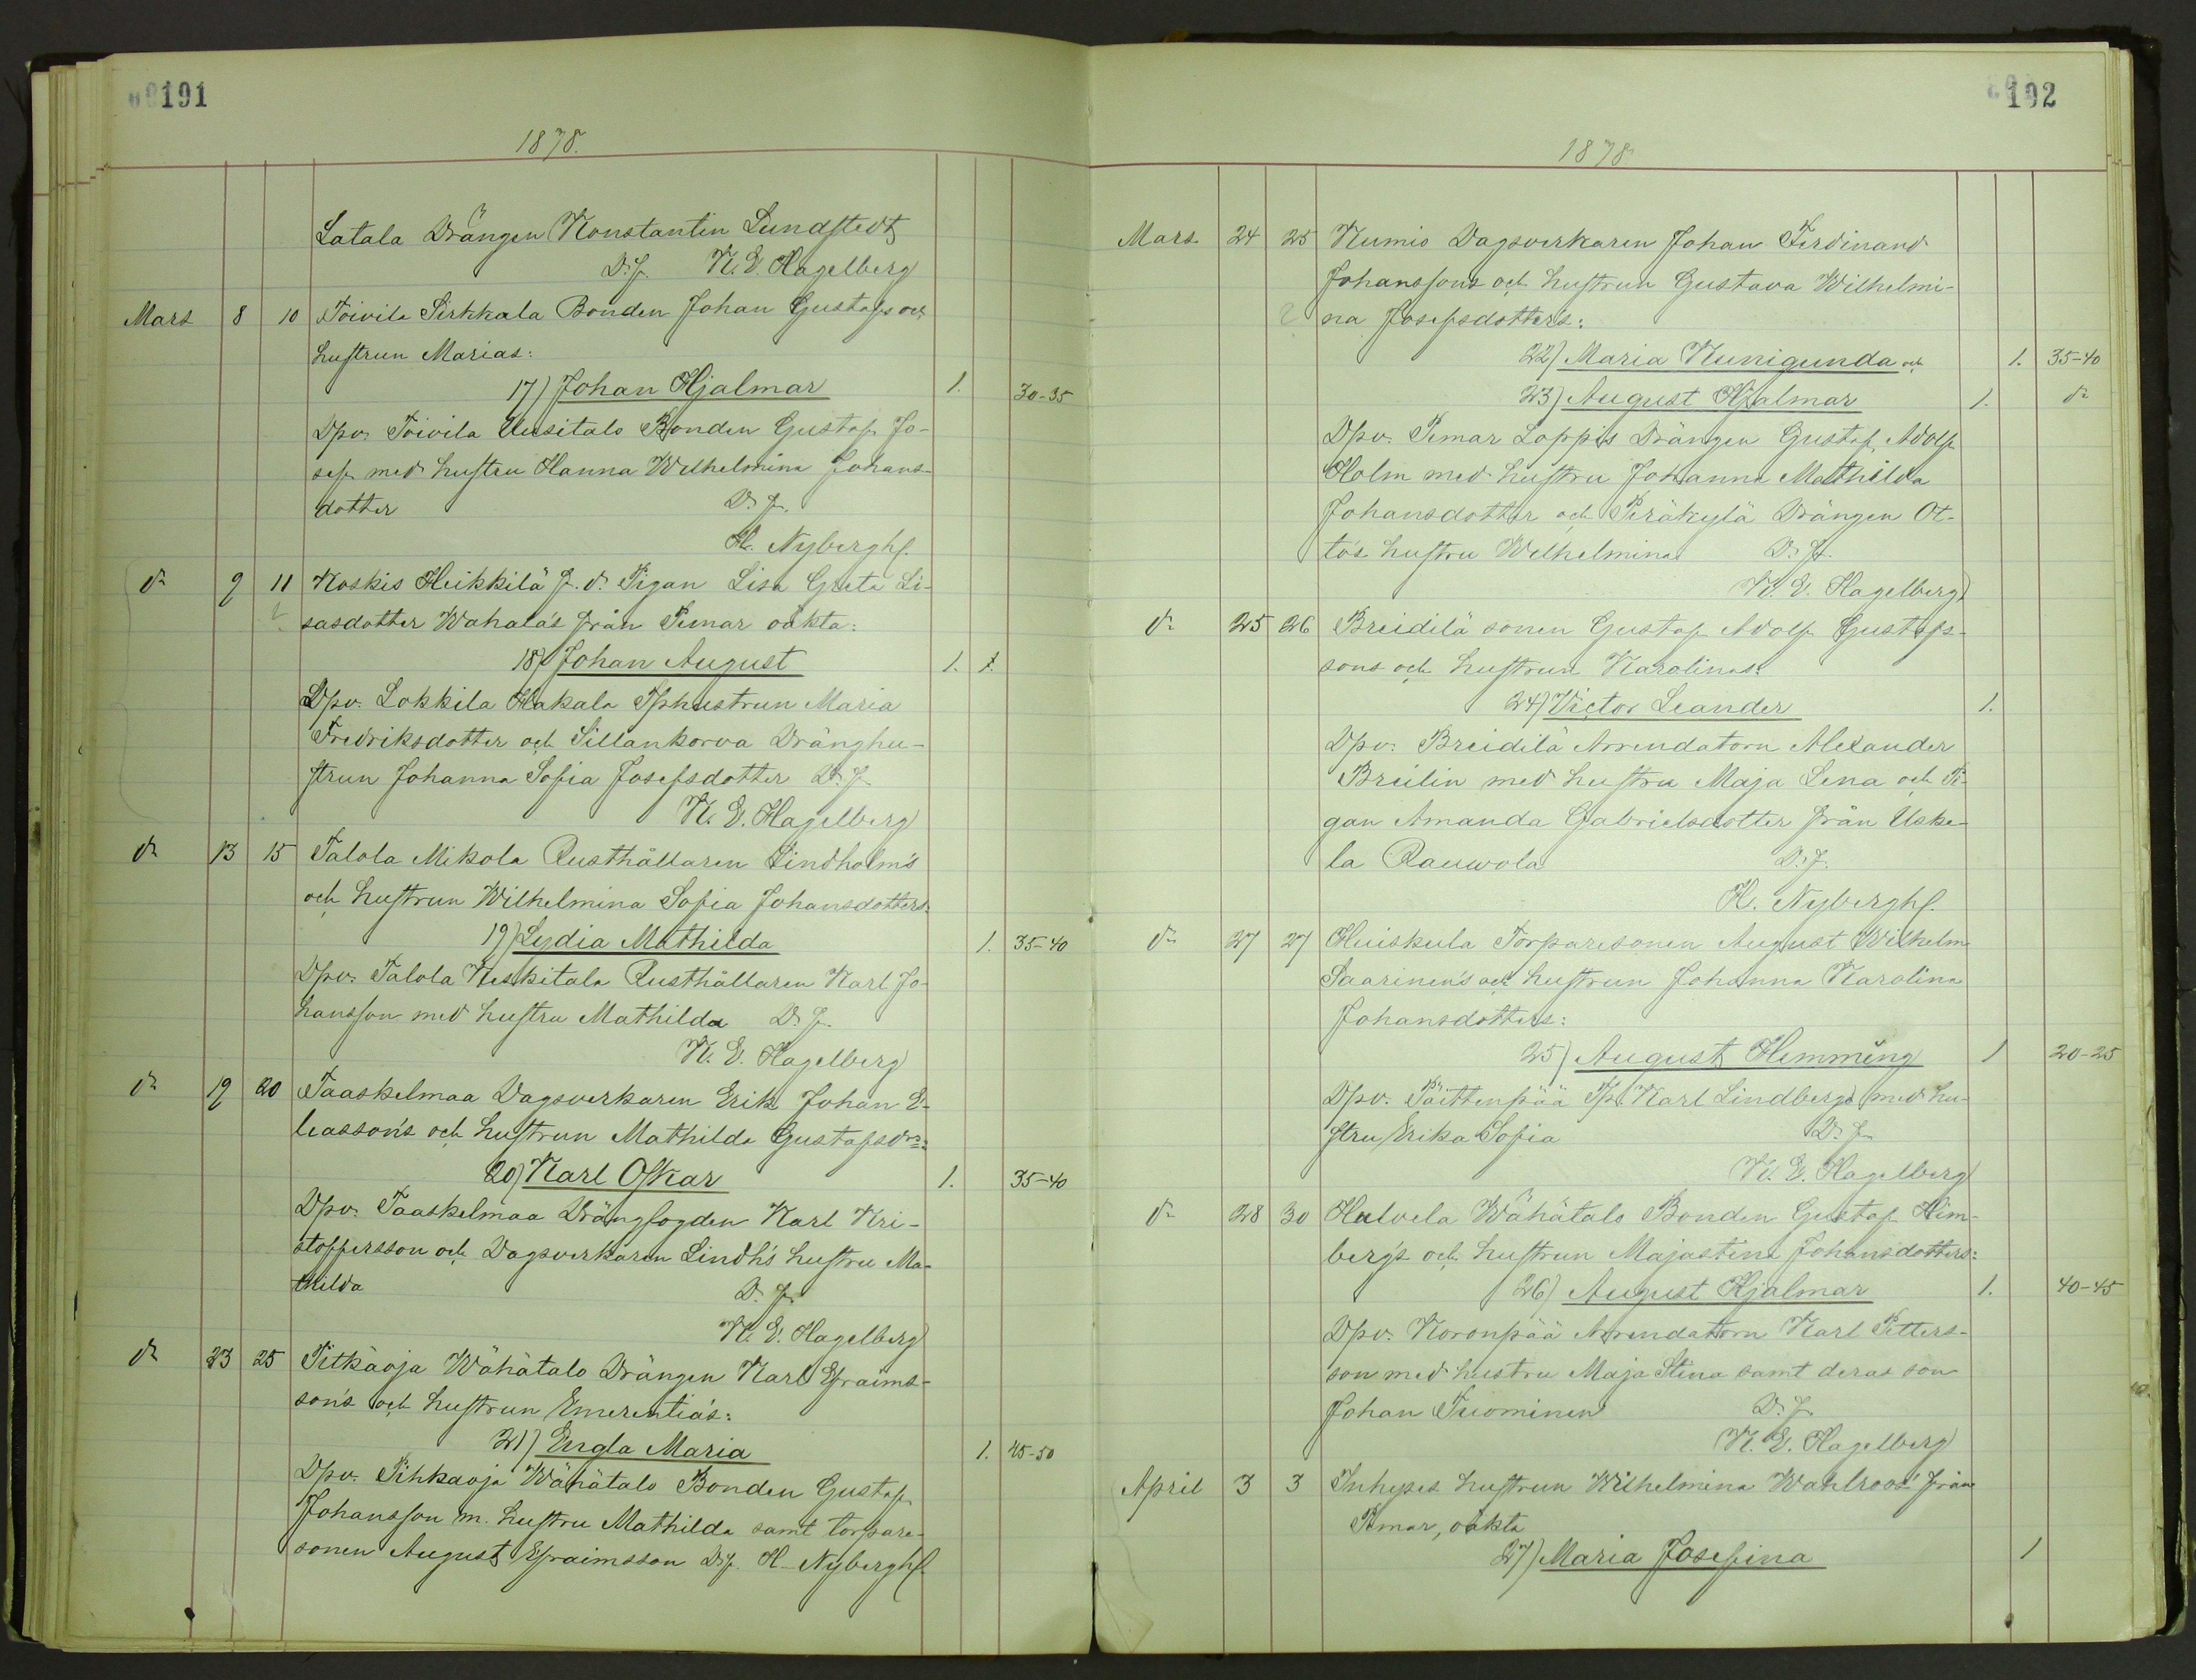 191
1878.
Latala Drängen Konstantin Lundstedt
D. f. K. E. Hagelberg
Mars 8 10 Toivila Sirkkala Bonden Johan Gustafs och
hustrun Marias:
17) Johan Hjalmar 1. 30-35
Dpv. Toivila Uusitalo Bonden Gustaf Jo-
sef med hustru Hanna Wilhelmina Johans-
dotter D. f.
H. Nybergh
do 9 11 Koskis Heikkilä f. d. Pigan Lisa Greta Li-
sasdotter Wahala's från Pemar oäkta:
18) Johan August 1. 1.
Dpv. Lokkila Hakala Tphustrun Maria
Fredriksdotter och Sillankorva Dränghu-
strun Johanna Sofia Josefsdotter D. f.
K. E. Hagelberg
do 13 15 Talola Mikola Rusthållaren Lindholm's
och hustrun Wilhelmina Sofia Johansdotters:
19) Lydia Mathilda 1. 35-40
Dpv. Talola Keskitalo Rusthållaren Karl Jo-
hansson med hustru Mathilda D. f.
K. E. Hagelberg
do 19 20 Taaskelmaa Dagsverkaren Erik Johan E-
leasson's och hustrun Mathilda Gustafsdrs:
20) Karl Oskar 1. 35-40
Dpv. Taaskelmaa Drängfogden Karl Kri-
stoffersson och Dagsverkaren Lindh's hustru Ma-
thilda D. f.
K. E. Hagelberg
do 23 25 Pitkäoja Wähätalo Drängen Karl Efraims-
son's och hustrun Emerentia's:
21) Engla Maria 1. 45-50
Dpv. Pihkaoja Wähätalo Bonden Gustaf
Johansson m. hustru Mathilda samt torpare-
sonen August Efraimsson D. f. H. Nybergh
192
1878
Mars 24 25 Kumio Dagsverkaren Johan Ferdinand
Johanssons och hustrun Gustava Wilhelmi-
na Josefsdotter's:
22) Maria Kunigunda och 1. 35-40
23) August Hjalmar 1. do
Dpv. Pemar Loppis Drängen Gustaf Adolf
Holm med hustru Johanna Mathilda
Johansdotter och Peräkylä Drängen Ot-
to's hustru Wilhelmina D. f.
K. E. Hagelberg
do 25 26 Breidilä sonen Gustaf Adolf Gustafs-
sons och hustrun Karolinas:
24) Victor Leander 1.
Dpv. Breidilä Arrendatorn Alexander
Breilin med hustru Maja Lena och Pi-
gan Amanda Gabrielsdotter från Uske-
la Rauwola D. f.
H. Nybergh
do 27 27 Huiskula Torparesonen August Wilhelm
Saarinen's och hustrun Johanna Karolina
Johansdotters:
25) August Hemming 1 20-25
Dpv. Päittenpää Tp. Karl Lindberg med hu-
stru Erika Sofia D. f.
K. E. Hagelberg
do 28 30 Halvela Wähätalo Bonden Gustaf Him-
berg's och hustrun Majastina Johansdotters:
26) August Hjalmar 1. 40-45
Dpv. Koronpää Arrendatorn Karl Petters-
son med hustru Maja Stina samt deras son
Johan Tuominen D. f.
K. E. Hagelberg
April 3 3 Inhyses hustrun Wilhelmina Wahlroos' från
Pemar, oäkta
27) Maria Josefina 1